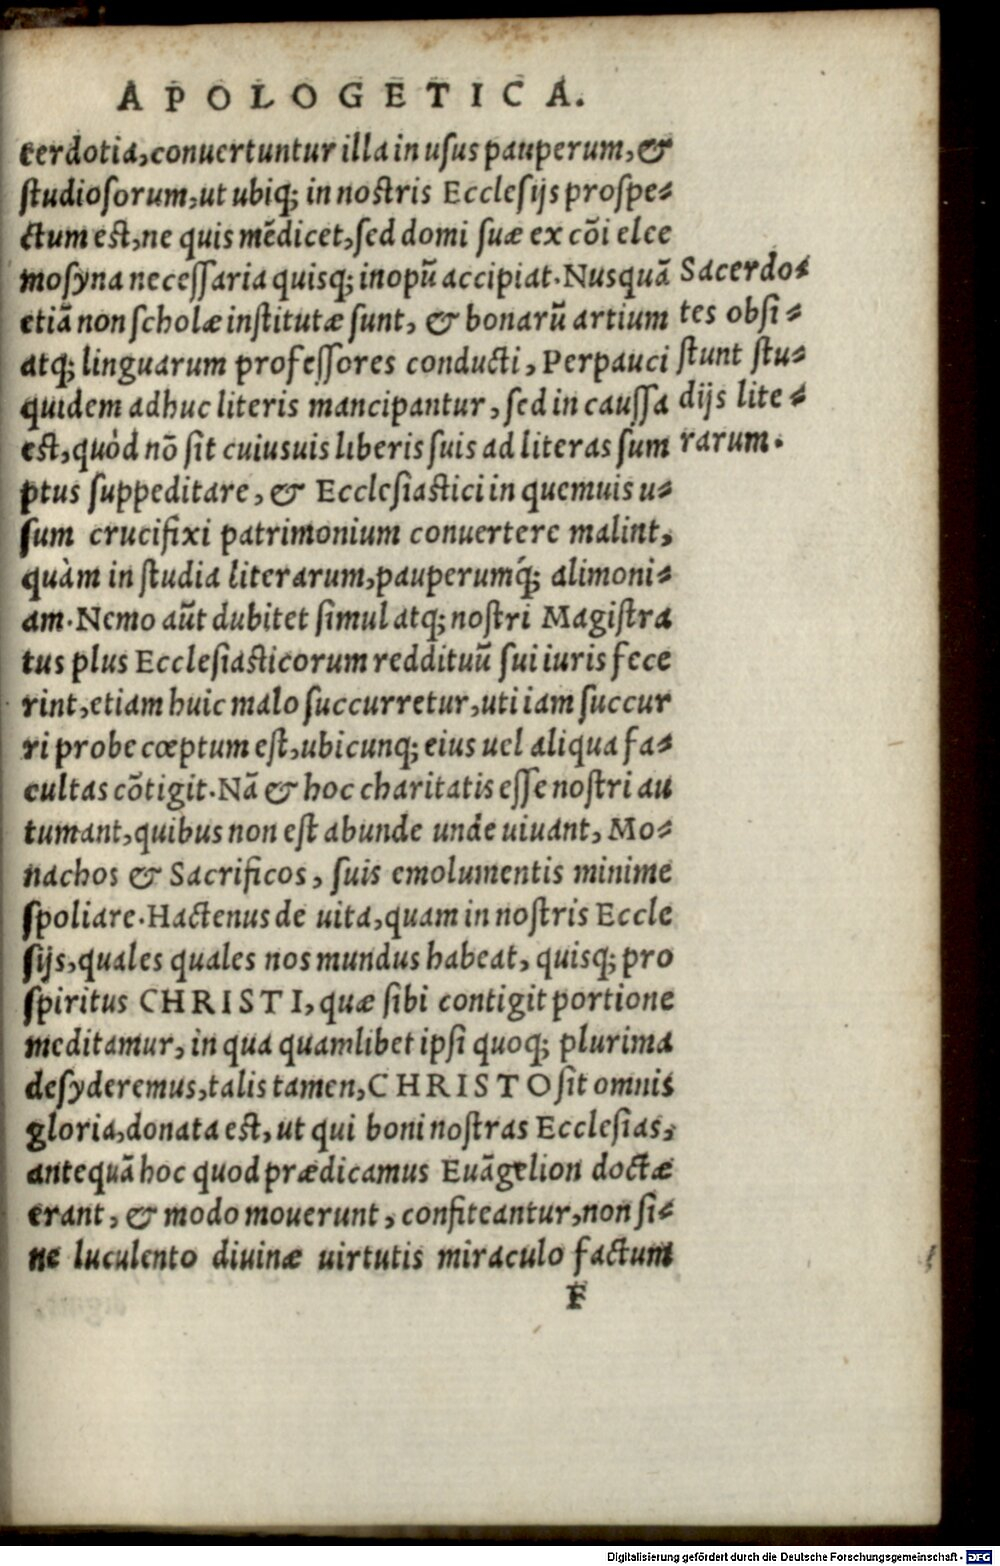 APOLOGETICA.
cerdotia, conuertuntur illa in uſus pauperum, &
ſtudioſorum, ut ubiq; in noſtris Eccleſijs proſpe-
ctum eſt, ne quis mēdicet, ſed domi ſuæ ex cōi elee
moſyna neceſſaria quisq; inopū accipiat. Nusquā
etiā non ſcholæ inſtitutæ ſunt, & bonarū artium
atq; linguarum profeſſores conducti, Perpauci
quidem adhuc literis mancipantur, ſed in cauſſa
eſt, quòd nō ſit cuiusuis liberis ſuis ad literas ſum
ptus ſuppeditare, & Eccleſiaſtici in quemuis u-
ſum crucifixi patrimonium conuertere malint,
quàm in ſtudia literarum, pauperumq́; alimoni-
am. Nemo aūt dubitet ſimul atq; noſtri Magiſtra
tus plus Eccleſiaſticorum reddituū ſui iuris fece
rint, etiam huic malo ſuccurretur, uti iam ſuccur
ri probe cœptum eſt, ubicunq; eius uel aliqua fa-
cultas cōtigit. Nā & hoc charitatis eſſe noſtri au
tumant, quibus non eſt abunde unde uiuant, Mo-
nachos & Sacrificos, ſuis emolumentis minime
ſpoliare. Hactenus de uita, quam in noſtris Eccle
ſijs, quales quales nos mundus habeat, quisq; pro
ſpiritus CHRISTI, quæ ſibi contigit portione
meditamur, in qua quamlibet ipſi quoq; plurima
deſyderemus, talis tamen, CHRISTO ſit omnis
gloria, donata eſt, ut qui boni noſtras Eccleſias,
antequā hoc quod prædicamus Euāgelion doctæ
erant, & modo mouerunt, confiteantur, non ſi-
ne luculento diuinæ uirtutis miraculo factum
F
Sacerdo-
tes obſi-
ſtunt ſtu-
dijs lite-
rarum.
Digitalisierung gefördert durch die Deutsche Forschungsgemeinschaft - DFG